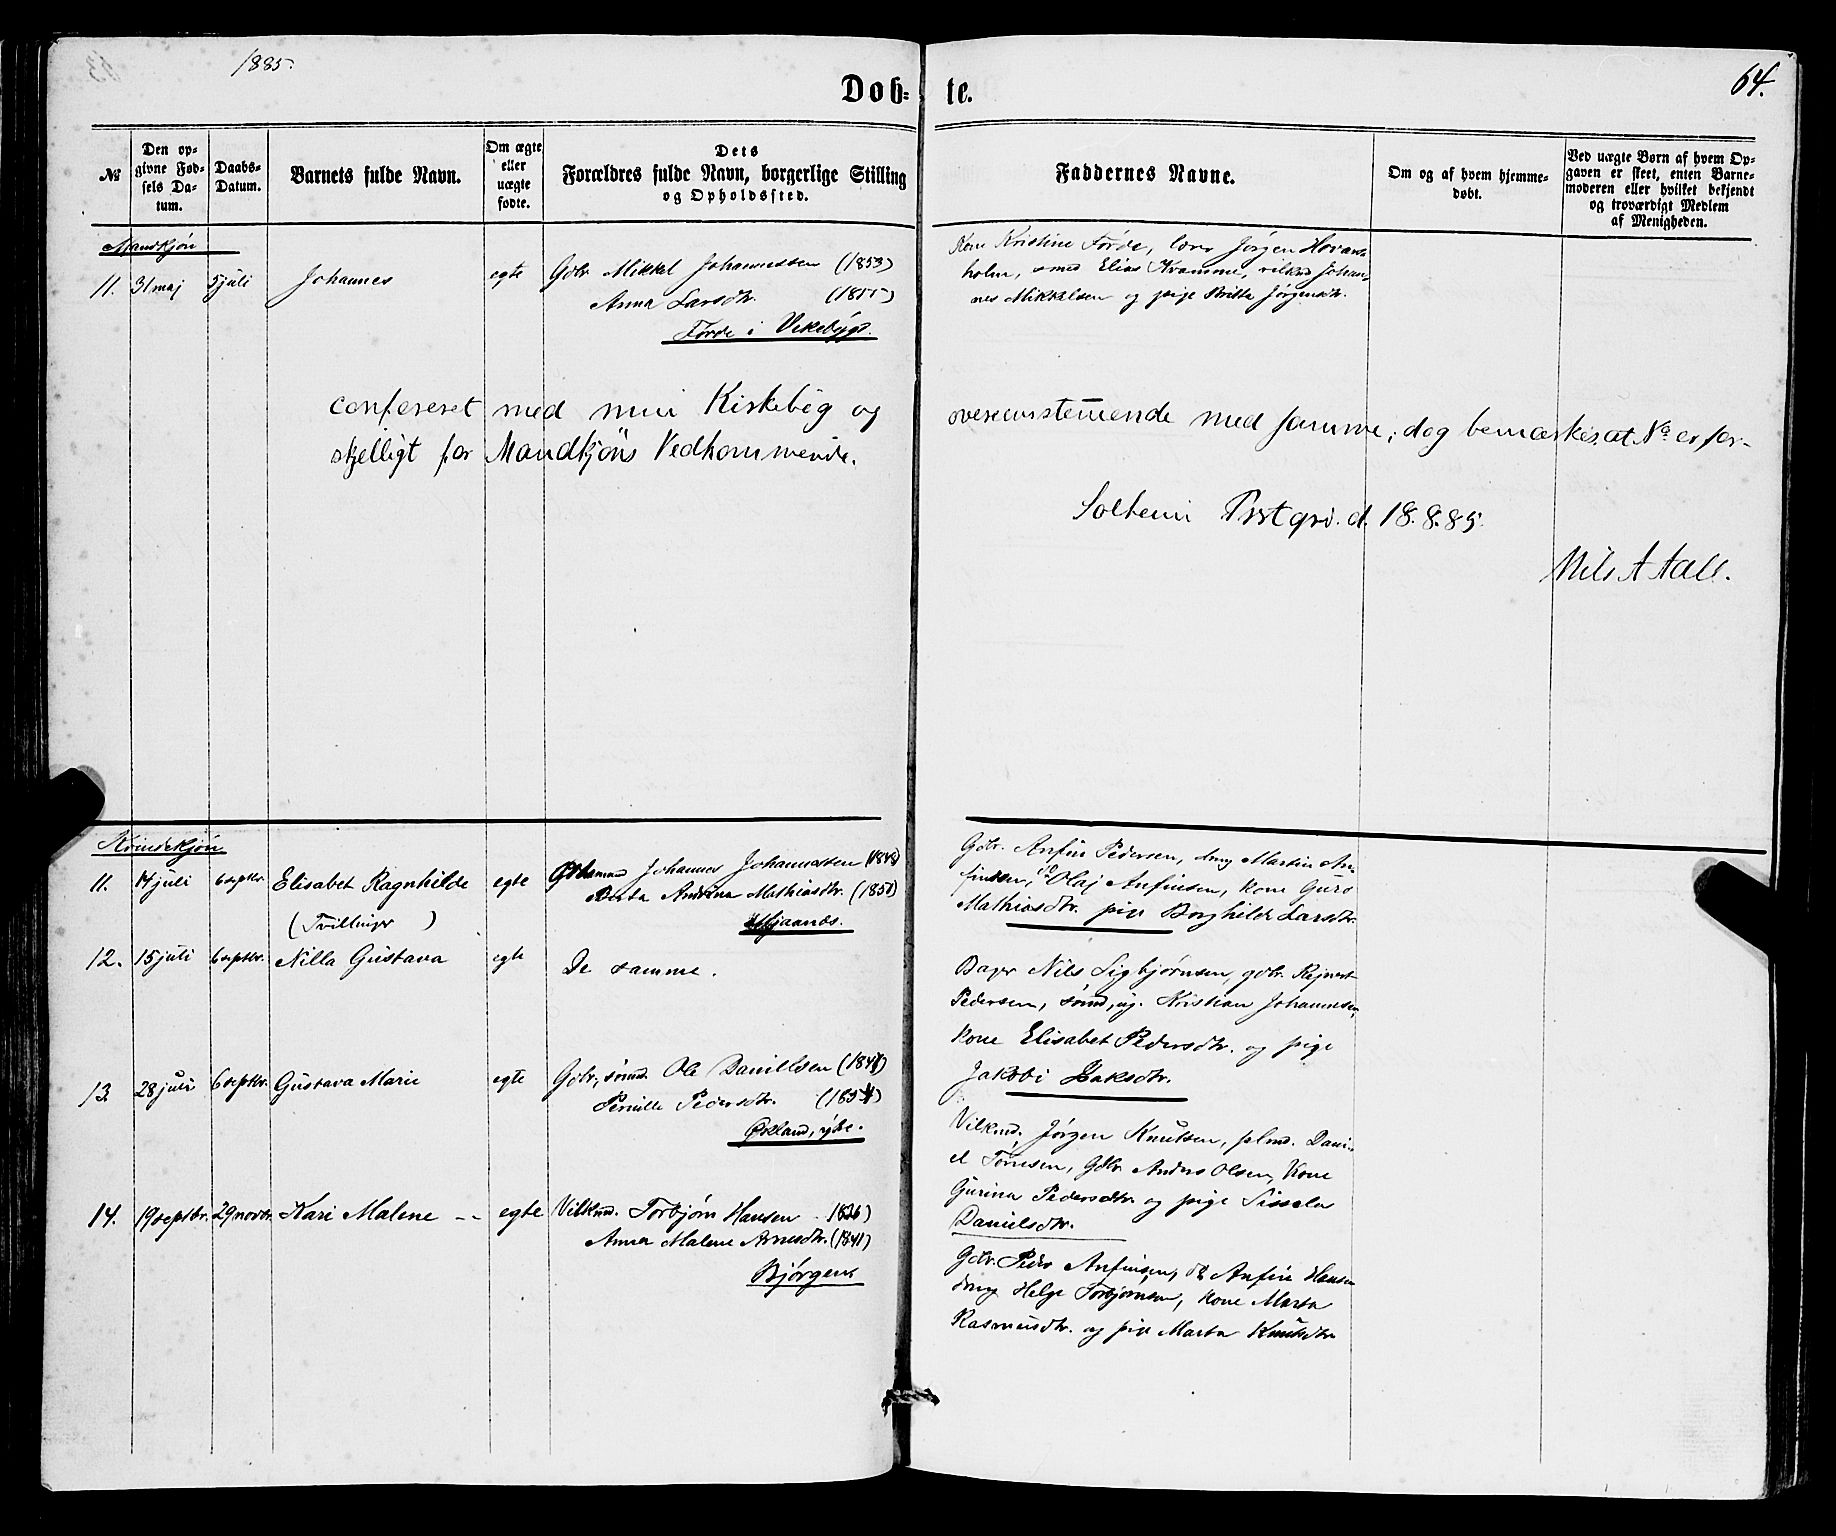 1885.
64.
Døb- te.
№
Den op-
givne Fød-
sels Da-
tum.
Daabs-
Datum.
Barnets fulde Navn.
Om ægte
eller
uægte
fødte.
Dets
Forældres fulde Navn, borgerlige Stilling
og Opholdssted.
Faddernes Navne.
Om og af hvem hjemme-
døbt.
Ved uægte Børn af hvem Op-
gaven er skeet, enten Barne-
moderen eller hvilket bekjendt
og troværdigt Medlem
af Menigheden.
Mandkjøn
11. 31 maj 5 juli Johannes egte Gdbr. Mikkel Johannessen (1853)
Anna Larsdtr. (1855)
Førde i Vikebygd.
Kone Kristine Førde, Jørgen Hovans-
holm, smed Elias Kramme, Johan-
nes Mikkelsen og pige Britta Jørgensdtr.
confereret med min Kirkebog og overensstemmende med samme; dog bemærkes at No er for-
skjelligt for Mandkjøns Vedkommende.
Solheim Prstgrd. d. 18.8.85.
Nils A Aall.
Kvindekjøn
11. 14 juli 6 septbr. Elisabet Ragnhilde egte Johannes Johannessen (1848)
(Tvillinger) Andrea Mathiasdtr. (1851)
Gdbr. Anfin Pedersen, dreng Martin An-
finsen, Olaj Anfinsen, kone Guro
Mathiasdtr. pige Borghilde Larsdtr.
12. 15 juli 6 septbr. Nilla Gustava egte De samme.
Nils Sigbjørnsen, gdbr. Rejnert
Pedersen, sømd, ug. Kristian Johannesen,
kone Elisabet Pedersdtr. og pige
Jakobi Isaksdtr.
13. 28 juli 6 septbr. Gustava Marie egte Gdbr., sømd. Ole Daniellsen
Pernille Pedersdtr.
Økland, ytre.
Jørgen Knutsen, plmd. Dani-
el Tørresen, Gdbr Anders Olsen, Kone
Gurina Pedersdtr. og pige Sissela
Danielsdtr.
14. 19 septbr. 29 novbr. Kari Malene -- egte Torbjørn Hansen - 1836)
Anna Malene Arnesdtr. (1841)
Bjørgen
Gdbr. Peder Anfinsen, do Anfin Hansen
dreng Helge Torbjørnsen, kone Marta
Rasmusdtr. og pige Marta Knutsdtr